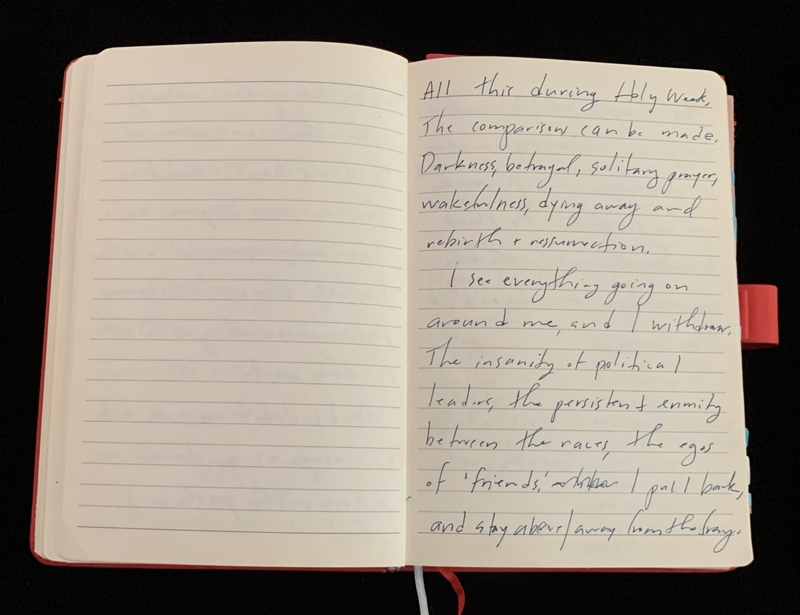 All this during Holy Week.
The comparison can be made.
Darkness, betrayal, solitary prayer,
wakefulness, dying away and
rebirth + resurrection.
I see everything going on
around me, and I withdraw.
The insanity of political
leaders, the persistent enmity
between the races, the egos
of 'friends,' I pull back,
and stay above/away from the fray.